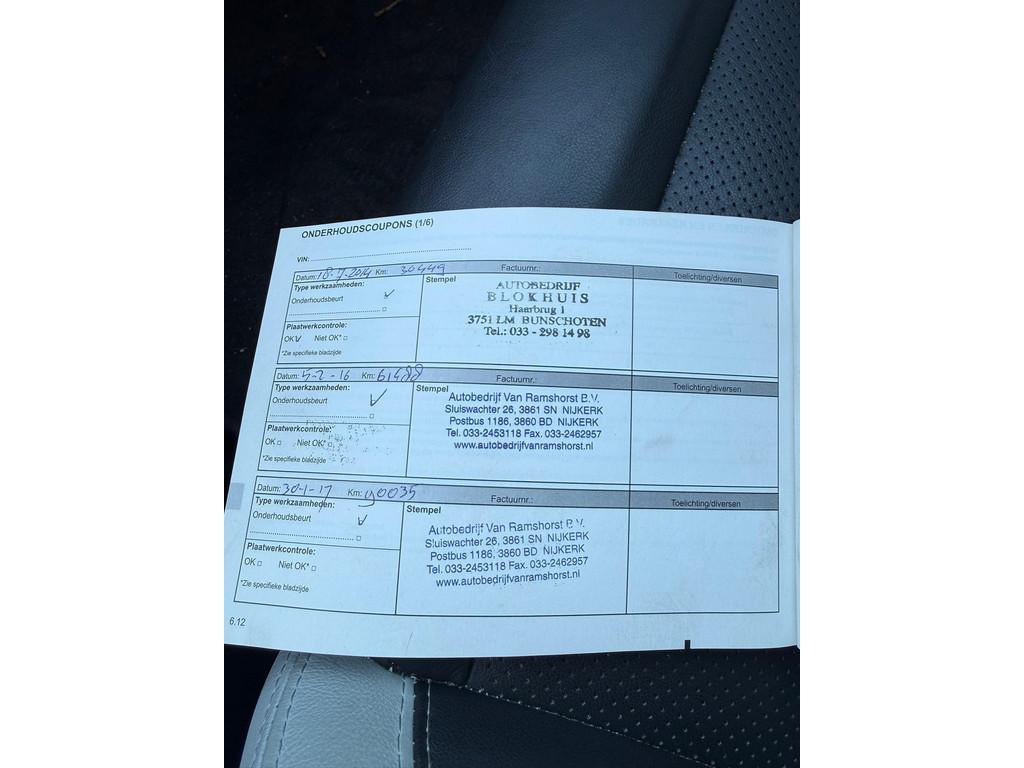 ONDERHOUDSCOUPONS (1/6)
VIN:
Datum: 18-7-2014 Km: 30449 Factuurnr.: Toelichting/diversen
Type werkzaamheden:
Onderhoudsbeurt
Plaatwerkcontrole:
OK Niet OK*
*Zie specifieke bladzijde
Stempel
AUTOBEDRIJF
BLOKHUIS
Haarbrug 1
3751 LM BUNSCHOTEN
Tel.: 033 - 298 14 98
Datum: 5-2-16 Km: 61488 Factuurnr.: Toelichting/diversen
Type werkzaamheden:
Onderhoudsbeurt
Plaatwerkcontrole:
OK Niet OK*
*Zie specifieke bladzijde
Stempel
Autobedrijf Van Ramshorst B.V.
Sluiswachter 26, 3861 SN NIJKERK
Postbus 1186, 3860 BD NIJKERK
Tel. 033-2453118 Fax. 033-2462957
www.autobedrijfvanramshorst.nl
Datum: 30-1-17 Km: 90035 Factuurnr.: Toelichting/diversen
Type werkzaamheden:
Onderhoudsbeurt
Plaatwerkcontrole:
OK Niet OK*
*Zie specifieke bladzijde
Stempel
Autobedrijf Van Ramshorst B.V.
Sluiswachter 26, 3861 SN NIJKERK
Postbus 1186, 3860 BD NIJKERK
Tel. 033-2453118 Fax. 033-2462957
www.autobedrijfvanramshorst.nl
6.12